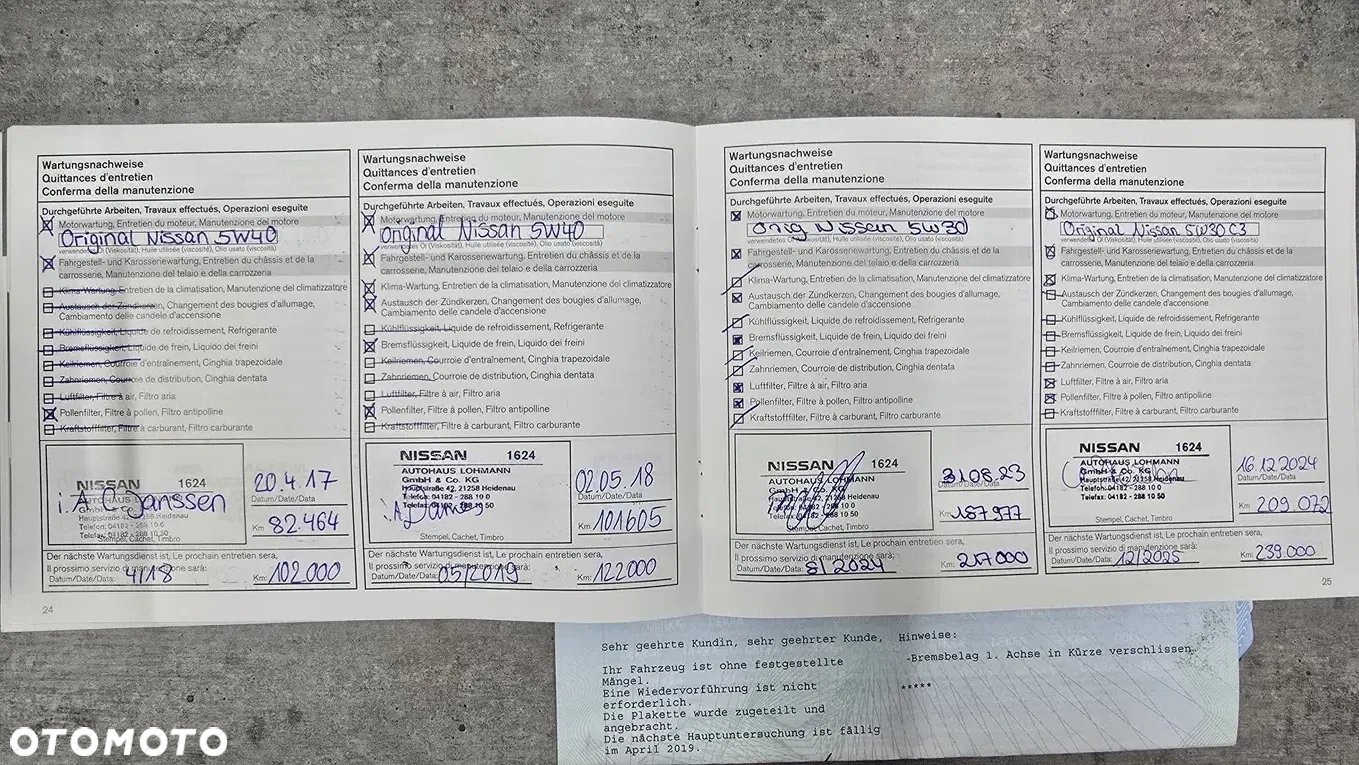 Wartungsnachweise
Quittances d'entretien
Conferma della manutenzione
Durchgeführte Arbeiten, Travaux effectués, Operazioni eseguite
Motorwartung, Entretien du moteur, Manutenzione del motore
Original Nissan 5W40
verwendetes Öl (Viskosität), Huile utilisée (viscosité), Olio usato (viscosità)
Fahrgestell- und Karosseriewartung, Entretien du châssis et de la
carrosserie, Manutenzione del telaio e della carrozzeria
Klima-Wartung, Entretien de la climatisation, Manutenzione del climatizzatore
Austausch der Zündkerzen, Changement des bougies d'allumage,
Cambiamento delle candele d'accensione
Kühlflüssigkeit, Liquide de refroidissement, Refrigerante
Bremsflüssigkeit, Liquide de frein, Liquido dei freini
Keilriemen, Courroie d'entraînement, Cinghia trapezoidale
Zahnriemen, Courroie de distribution, Cinghia dentata
Luftfilter, Filtre à air, Filtro aria
Pollenfilter, Filtre à pollen, Filtro antipolline
Kraftstofffilter, Filtre à carburant, Filtro carburante
NISSAN 1624
AUTOHAUS
i.A. Janssen
Hauptstraße 42, 21258 Heidenau
Telefon: 04182 - 288 10 0
Telefax: 04182 - 288 10 50
Stempel, Cachet, Timbro
20.4.17
Datum/Date/Data
Km: 82.464
Der nächste Wartungsdienst ist, Le prochain entretien sera,
Il prossimo servizio di manutenzione sarà:
Datum/Date/Data: 4/18
Km: 102000
24
Wartungsnachweise
Quittances d'entretien
Conferma della manutenzione
Durchgeführte Arbeiten, Travaux effectués, Operazioni eseguite
Motorwartung, Entretien du moteur, Manutenzione del motore
Original Nissan 5W40
verwendetes Öl (Viskosität), Huile utilisée (viscosité), Olio usato (viscosità)
Fahrgestell- und Karosseriewartung, Entretien du châssis et de la
carrosserie, Manutenzione del telaio e della carrozzeria
Klima-Wartung, Entretien de la climatisation, Manutenzione del climatizzatore
Austausch der Zündkerzen, Changement des bougies d'allumage,
Cambiamento delle candele d'accensione
Kühlflüssigkeit, Liquide de refroidissement, Refrigerante
Bremsflüssigkeit, Liquide de frein, Liquido dei freini
Keilriemen, Courroie d'entraînement, Cinghia trapezoidale
Zahnriemen, Courroie de distribution, Cinghia dentata
Luftfilter, Filtre à air, Filtro aria
Pollenfilter, Filtre à pollen, Filtro antipolline
Kraftstofffilter, Filtre à carburant, Filtro carburante
NISSAN 1624
AUTOHAUS LOHMANN
GmbH & Co. KG
Hauptstraße 42, 21258 Heidenau
Telefon: 04182 - 288 10 0
Telefax: 04182 - 288 10 50
Stempel, Cachet, Timbro
02.05.18
Datum/Date/Data
Km: 101605
Der nächste Wartungsdienst ist, Le prochain entretien sera,
Il prossimo servizio di manutenzione sarà:
Datum/Date/Data: 05/2019
Km: 122000
Wartungsnachweise
Quittances d'entretien
Conferma della manutenzione
Durchgeführte Arbeiten, Travaux effectués, Operazioni eseguite
Motorwartung, Entretien du moteur, Manutenzione del motore
Orig Nissan 5W30
verwendetes Öl (Viskosität), Huile utilisée (viscosité), Olio usato (viscosità)
Fahrgestell- und Karosseriewartung, Entretien du châssis et de la
carrosserie, Manutenzione del telaio e della carrozzeria
Klima-Wartung, Entretien de la climatisation, Manutenzione del climatizzatore
Austausch der Zündkerzen, Changement des bougies d'allumage,
Cambiamento delle candele d'accensione
Kühlflüssigkeit, Liquide de refroidissement, Refrigerante
Bremsflüssigkeit, Liquide de frein, Liquido dei freini
Keilriemen, Courroie d'entraînement, Cinghia trapezoidale
Zahnriemen, Courroie de distribution, Cinghia dentata
Luftfilter, Filtre à air, Filtro aria
Pollenfilter, Filtre à pollen, Filtro antipolline
Kraftstofffilter, Filtre à carburant, Filtro carburante
NISSAN 1624
AUTOHAUS LOHMANN
GmbH & Co. KG
Hauptstraße 42, 21258 Heidenau
Telefon: 04182 - 288 10 0
Telefax: 04182 - 288 10 50
Stempel, Cachet, Timbro
31.08.23
Datum/Date/Data
Km: 187977
Der nächste Wartungsdienst ist, Le prochain entretien sera,
Il prossimo servizio di manutenzione sarà:
Datum/Date/Data: 8/2024
Km: 217000
Wartungsnachweise
Quittances d'entretien
Conferma della manutenzione
Durchgeführte Arbeiten, Travaux effectués, Operazioni eseguite
Motorwartung, Entretien du moteur, Manutenzione del motore
Original Nissan 5W30 C3
verwendetes Öl (Viskosität), Huile utilisée (viscosité), Olio usato (viscosità)
Fahrgestell- und Karosseriewartung, Entretien du châssis et de la
carrosserie, Manutenzione del telaio e della carrozzeria
Klima-Wartung, Entretien de la climatisation, Manutenzione del climatizzatore
Austausch der Zündkerzen, Changement des bougies d'allumage,
Cambiamento delle candele d'accensione
Kühlflüssigkeit, Liquide de refroidissement, Refrigerante
Bremsflüssigkeit, Liquide de frein, Liquido dei freini
Keilriemen, Courroie d'entraînement, Cinghia trapezoidale
Zahnriemen, Courroie de distribution, Cinghia dentata
Luftfilter, Filtre à air, Filtro aria
Pollenfilter, Filtre à pollen, Filtro antipolline
Kraftstofffilter, Filtre à carburant, Filtro carburante
NISSAN 1624
AUTOHAUS LOHMANN
GmbH & Co. KG
Hauptstraße 42, 21258 Heidenau
Telefon: 04182 - 288 10 0
Telefax: 04182 - 288 10 50
Stempel, Cachet, Timbro
16.12.2024
Datum/Date/Data
Km: 209.072
Der nächste Wartungsdienst ist, Le prochain entretien sera,
Il prossimo servizio di manutenzione sarà:
Datum/Date/Data: 12/2025
Km: 239.000
25
Sehr geehrte Kundin, sehr geehrter Kunde,
Ihr Fahrzeug ist ohne festgestellte
Mängel.
Eine Wiedervorführung ist nicht
erforderlich.
Die Plakette wurde zugeteilt und
angebracht.
Die nächste Hauptuntersuchung ist fällig
im April 2019.
Hinweise:
-Bremsbelag 1. Achse in Kürze verschlissen
*****
OTOMOTO